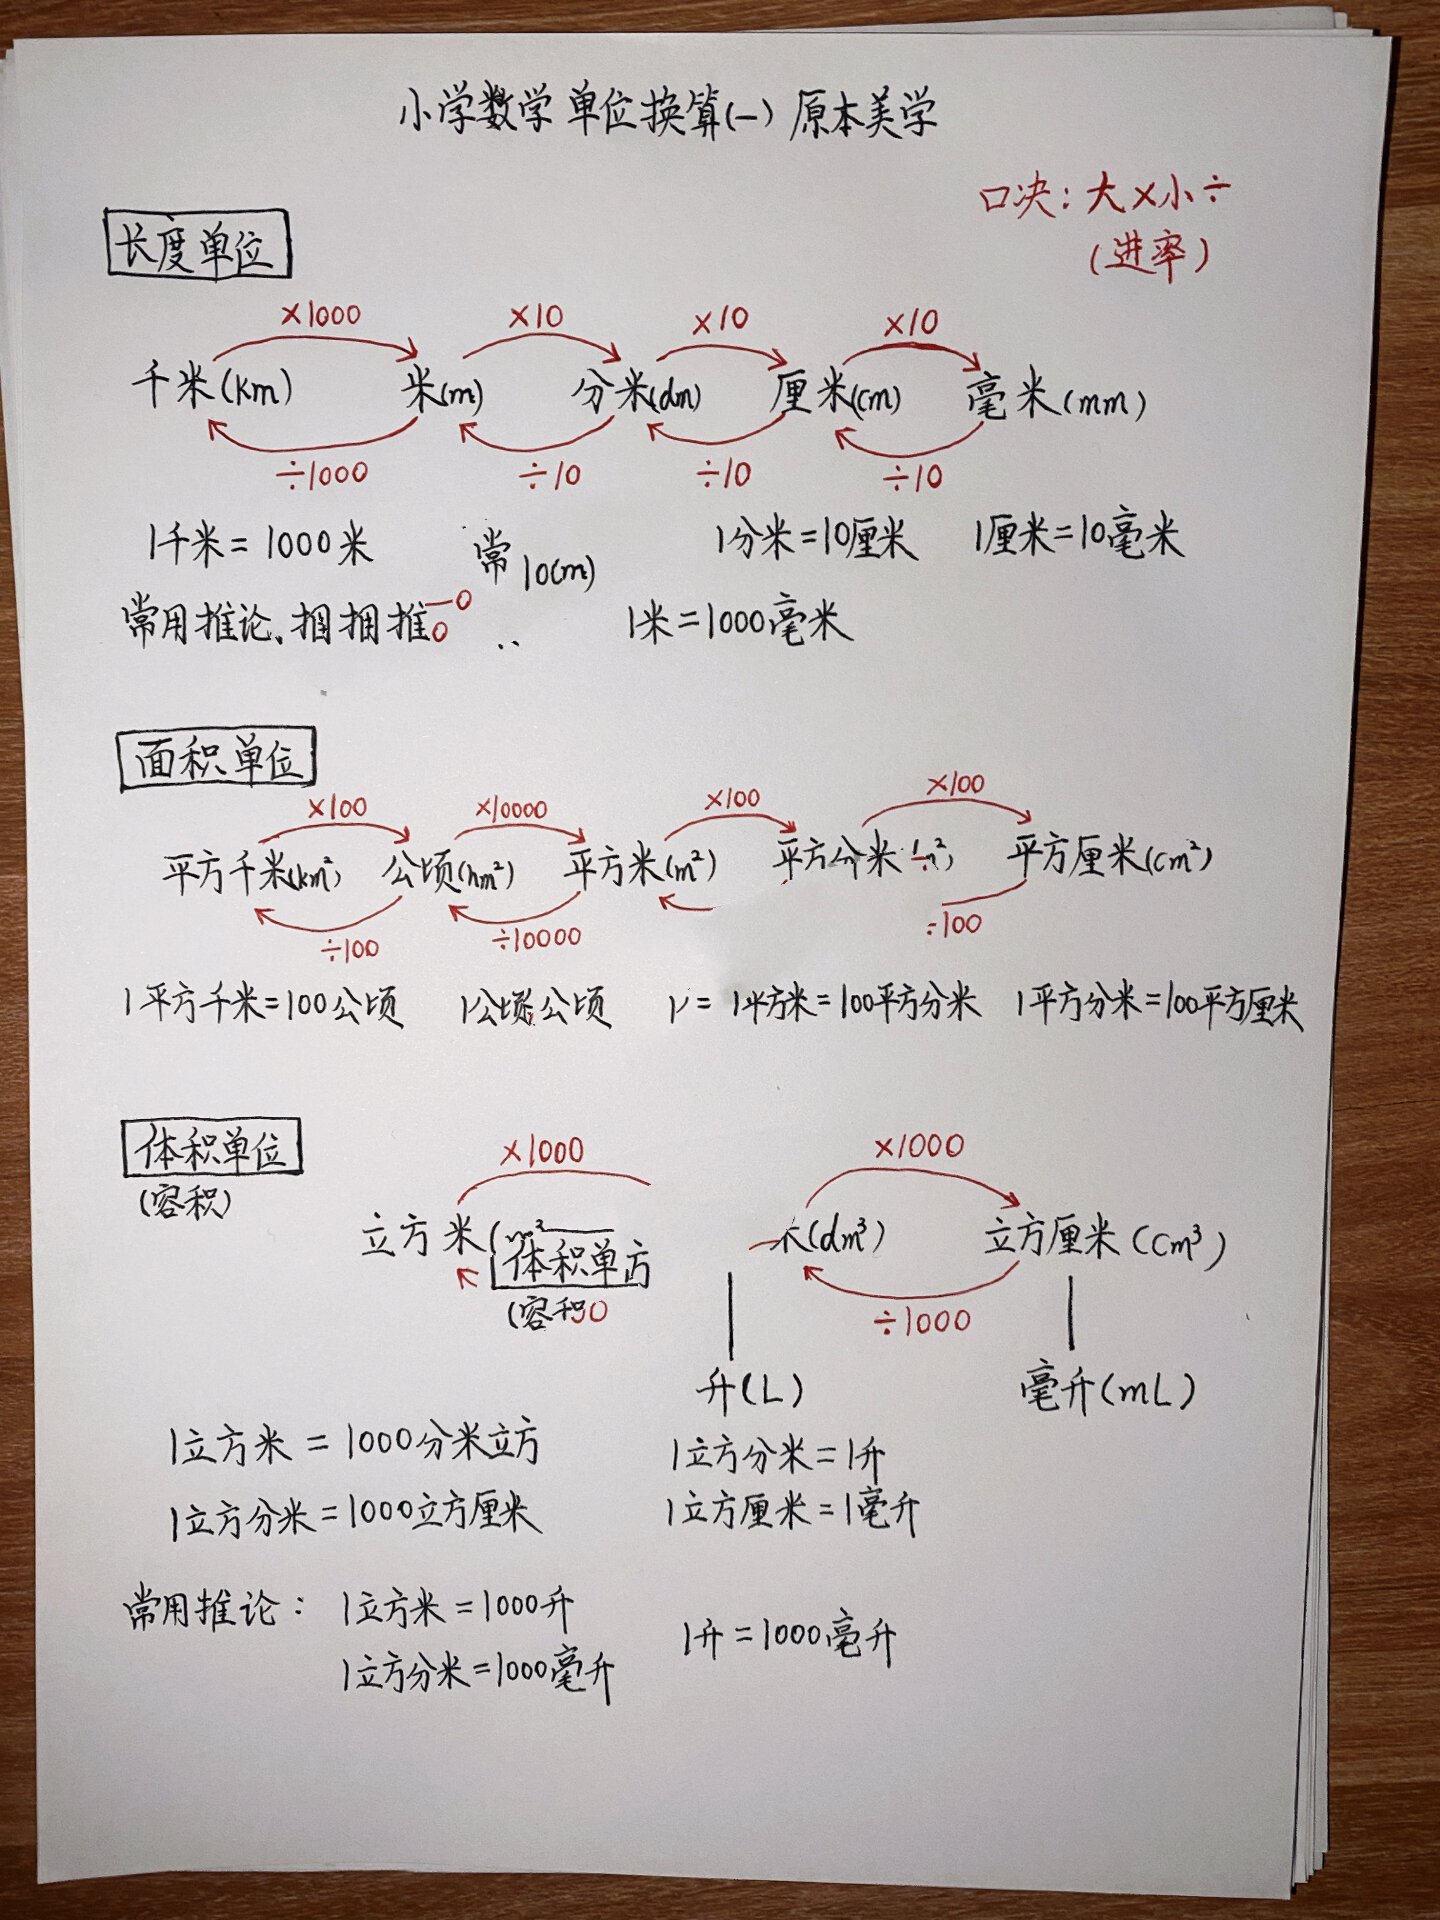 小学数学 单位换算(一) 原本美学
口决: 大×小÷
(进率)
长度单位
×1000 ×10 ×10 ×10
千米(km) 米(m) 分米(dm) 厘米(cm) 毫米(mm)
÷1000 ÷10 ÷10 ÷10
1千米=1000米 常10(m) 1分米=10厘米 1厘米=10毫米
常用推论、 推 1米=1000毫米
面积单位
×100 ×10000 ×100 ×100
平方千米(km²) 公顷(hm²) 平方米(m²) 平方分米 平方厘米(cm²)
÷100 ÷10000 100
1平方千米=100公顷 1公顷公顷 = 1平方米=100平方分米 1平方分米=100平方厘米
体积单位
(容积)
×1000 ×1000
立方米 (dm³) 立方厘米(cm³)
体积单方
(容积0 ÷1000
升(L) 毫升(mL)
1立方米=1000分米立方 1立方分米=1升
1立方分米=1000立方厘米 1立方厘米=1毫升
常用推论: 1立方米=1000升 1升=1000毫升
1立方分米=1000毫升